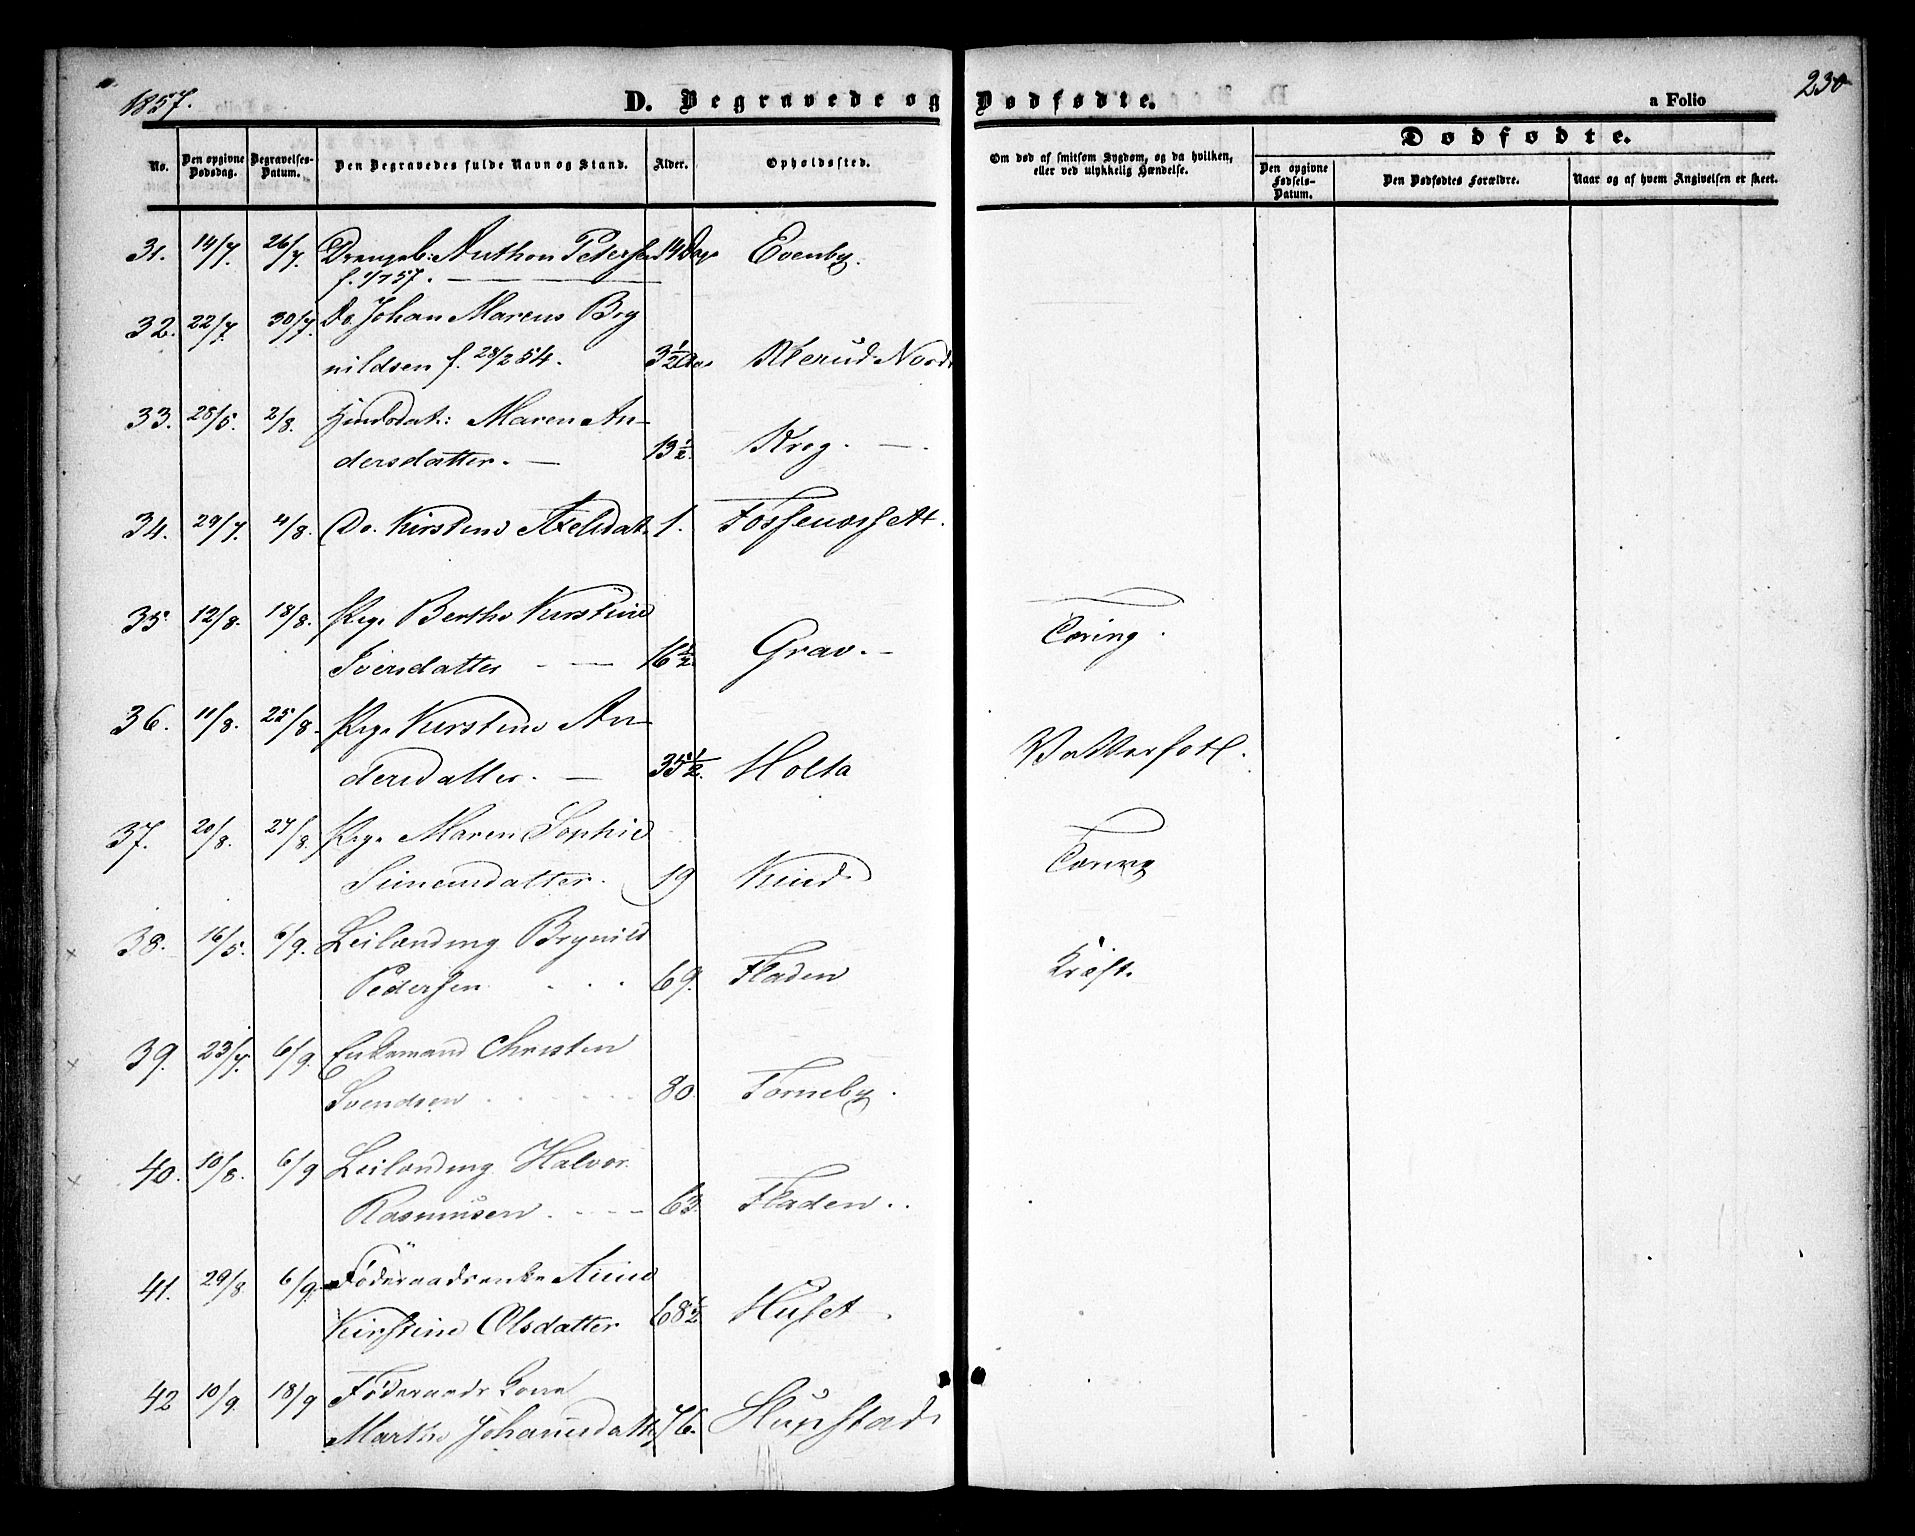 1857.
D. Begravede og Dødfødte.
a Folio
230
No.
Den opgivne Dødsdag.
Begravelses-Datum.
Den Begravedes fulde Navn og Stand.
Alder.
Opholdssted.
Om død af smitsom Sygdom, og da hvilken, eller ved ulykkelig Hændelse.
Dødfødte.
Den opgivne Fødsels-Datum.
Den Dødfødtes Forældre.
Naar og af hvem Angivelsen er skeet.
31. 14/7. 26/7. Drengeb: Anthon Petersen 14 Dage Evenby.
f. 1/7 57.
32. 22/7. 30/7. Do. Johan Marens Bry
nildsen f. 28/2 54. 3 1/2 Nord
33. 28/5. 2/8. Maren An-
dersdatter. 13 1/2. Krog.
34. 29/7. 4/8. Do. Kirstine Axelsdat. 1.
35. 12/8. 18/8. Pige Berthe Kirstine
Iversdatter 16 1/2. Grav. Tæring.
36. 11/8. 25/8. Pige Kirstine An-
dersdatter. 35 1/2. Holta Vattersot.
37. 20/8. 27/8. Pige Maren Sophie
Simensdatter. 19 Tæring
38. 16/5. 6/9. Leilænding Brynild
Pedersen 69. Fladen Kræft.
39. 23/7. 6/9. Enkemand Christen
Svendsen 80. Torneby.
40. 10/8. 6/9 Leilænding Halvor
Rasmusen. 63. Fladen.
41. 29/8 6/9. Föderaadsenke Anne
Kirstine Olsdatter 68 1/2. Huset
42 10/9. 18/9 Föderaads Kone
Marthe Johannesdatter 76. Hunstad